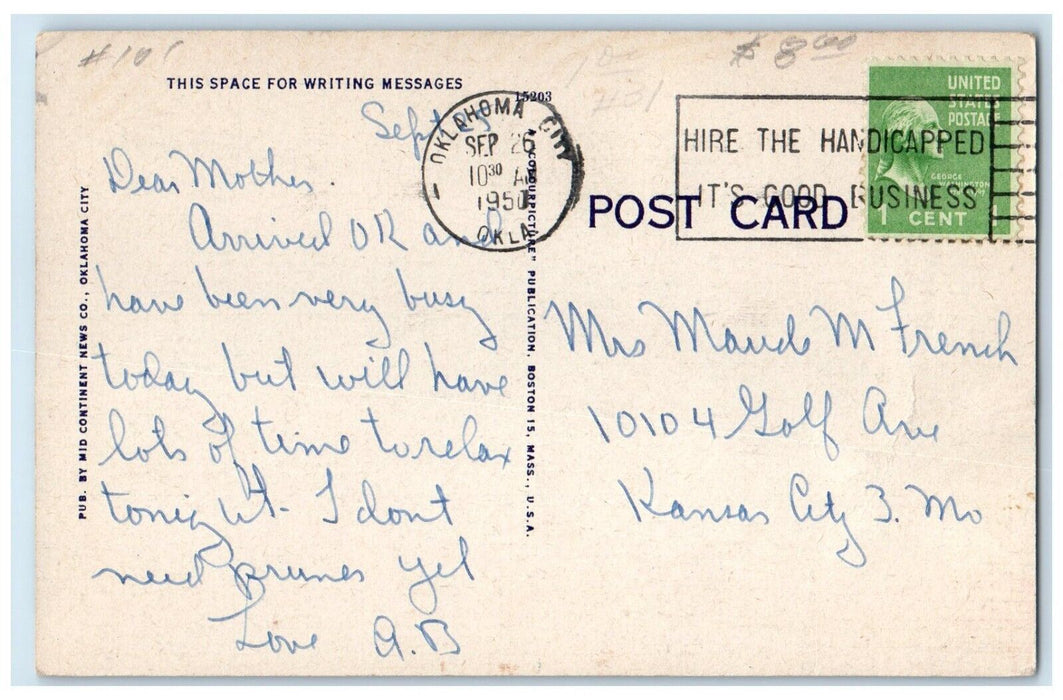 #101
$8.00
THIS SPACE FOR WRITING MESSAGES
15203
Sept 25
OKLAHOMA CITY
SEP 26
10 30 A
1950
OKLA
HIRE THE HANDICAPPED
IT'S GOOD BUSINESS
UNITED
STATES
POSTAGE
GEORGE
WASHINGTON
1 CENT
POST CARD
Dear Mother.
Arrived OK and
have been very busy
today but will have
lots of time to relax
tonight - I dont
need prunes yet
Love A.B
Mrs Maude M French
10104 Golf Ave
Kansas City 3. Mo
PUB. BY MID CONTINENT NEWS CO., OKLAHOMA CITY
"COLOURPICTURE" PUBLICATION, BOSTON 15, MASS., U.S.A.